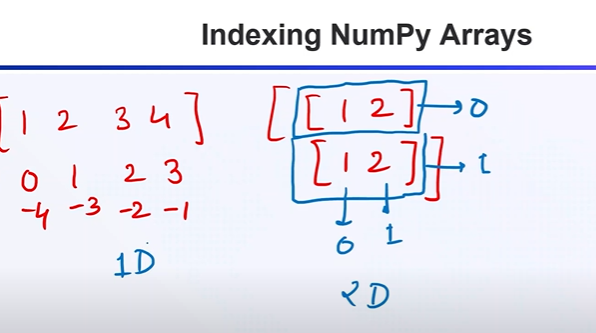 Indexing NumPy Arrays
[1 2 3 4]
0 1 2 3
-4 -3 -2 -1
1D
[[1 2] → 0
[1 2]] → 1
0 1
2D